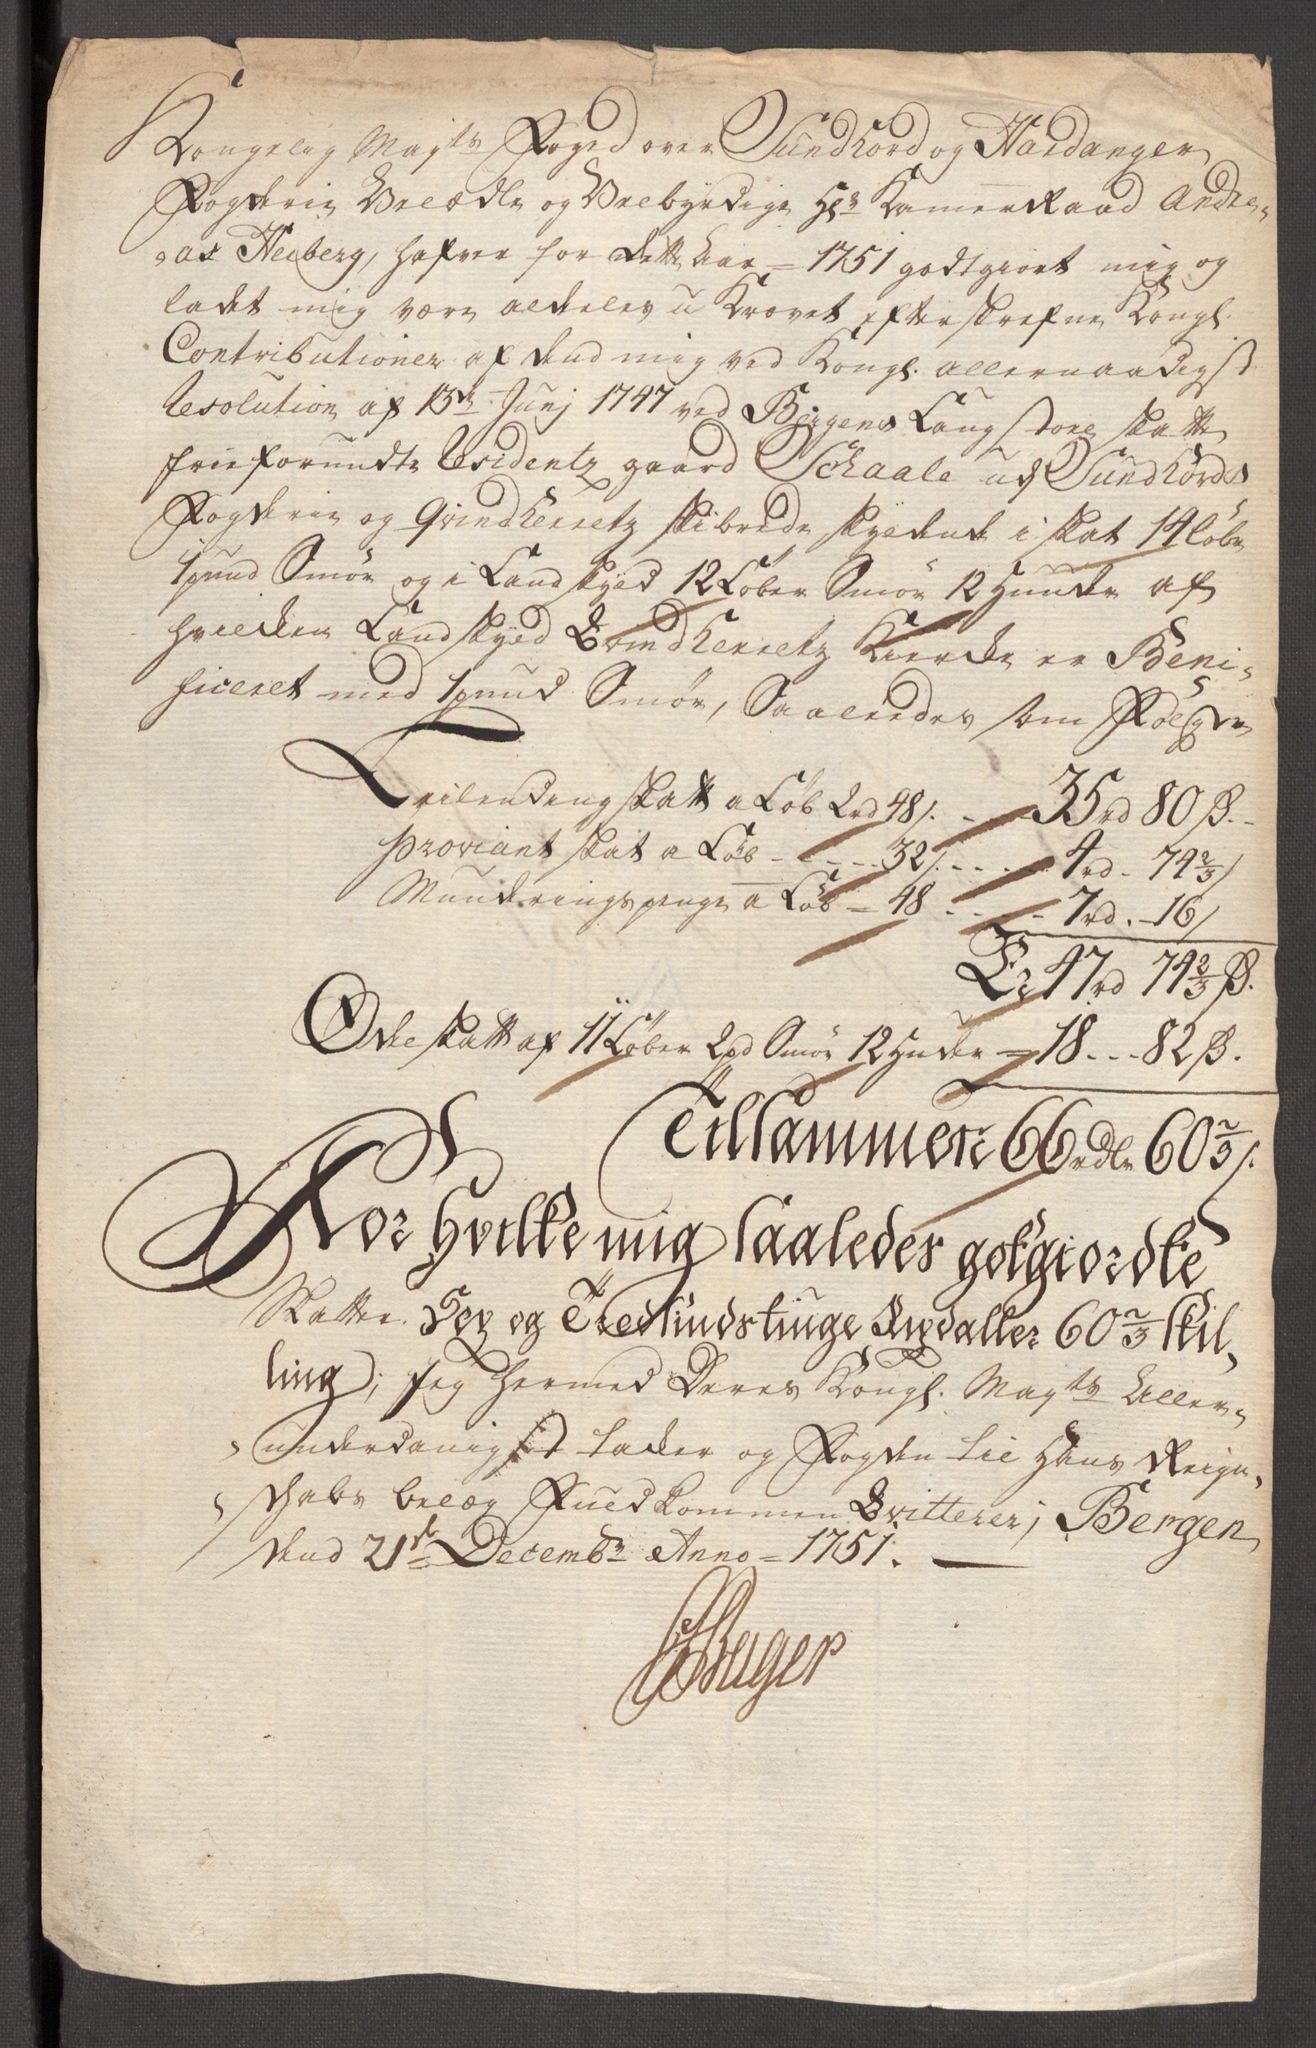 Kongelig Mayts Foged over Sundhord og Hardanger
Fogderie Velædle og Velbyrdige Hr Kamerraad Andre-
-as Heiberg, hafver for dette Aar = 1751 godtgiort mig og
ladet mig være aldeles u Krævet efterskrefne Kongl.
Contributioner af dend mig ved Kongl. allernaadigst
Resolution af 13de Junj 1747 ved Bergens Laugstoel skatte
frie forundte Residentz gaard Schaale udj Sundhords
Fogderie og Qvindherretz skibrede skyldende i skat 14 Løber
1 pund Smør og i Landskyld 12 Løber Smør 12 Huuder af
hvilcken Landskyld Qvindherretz Kiercke er Beni-
ficeret med 1 pund Smør, Saaledes som Følger
Leilending skatt a Løb 2rd 48 s. - - 35rd 80 ß. -
Proviant skat a Løb - - - - 32 s. - - - - 4rd - 74 2/3 s
Munderings penge a Løb = 48 - - - - 7rd. - 16 s
Er 47rd 74 2/3 ß.
Odelskatt af 11 Løber 2pd Smør 12 Huder = 18 - - - 82 ß.
Tilsammen 66 rdlr 60 2/3 s.
For hvilke mig saaledes gotgiordte
Skatter Sex og Tredsindstiuge Rixdaller 60 2/3 skil-
ling; Jeg hermed Deres Kongl. Mayts Aller-
underdanigst tacker og Fogden til Hans Reign-
skabs belæg Fuldkommen Qvitterer; Bergen
dend 21de Decembr Anno = 1751.